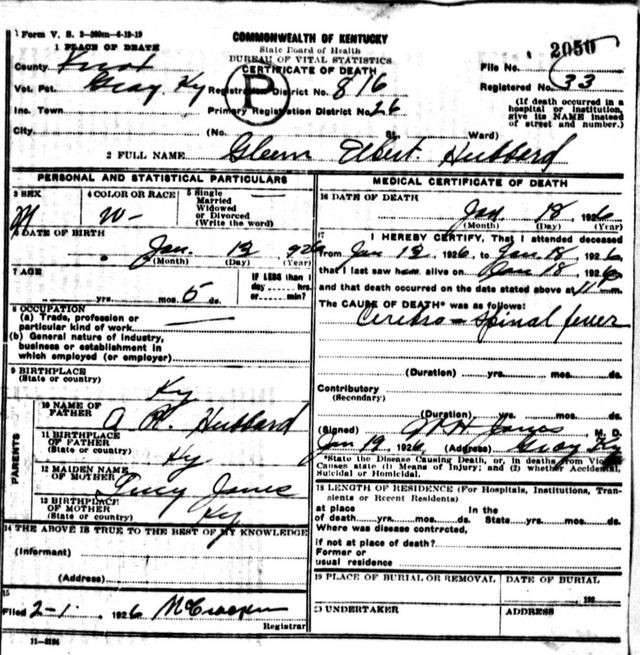 1 Form V. S. 2-200m-6-19-19
COMMONWEALTH OF KENTUCKY
State Board of Health
BUREAU OF VITAL STATISTICS
CERTIFICATE OF DEATH
2050
File No.
Registered No. 33
(If death occurred in a hospital or institution, give its NAME instead of street and number.)
1 PLACE OF DEATH
County Knox
Vot. Pct. Gray, Ky Registration District No. 816
P
Inc. Town Primary Registration District No. 26
City (No. St. Ward)
2 FULL NAME Glenn Elbert Hubbard
PERSONAL AND STATISTICAL PARTICULARS
3 SEX M
4 COLOR OR RACE W-
5 Single
Married
Widowed
or Divorced
(Write the word)
6 DATE OF BIRTH
Jan. 13, 926
(Month) (Day) (Year)
7 AGE
IF LESS than 1
day hrs.
or min?
yrs. mos. 5 ds.
8 OCCUPATION
(a) Trade, profession or
particular kind of work
(b) General nature of industry,
business or establishment in
which employed (or employer)
9 BIRTHPLACE
(State or country) Ky
PARENTS
10 NAME OF
FATHER A Hubbard
11 BIRTHPLACE
OF FATHER
(State or country) Ky
12 MAIDEN NAME
OF MOTHER Lucy Jones
13 BIRTHPLACE
OF MOTHER
(State or country) Ky
14 THE ABOVE IS TRUE TO THE BEST OF MY KNOWLEDGE
(Informant)
(Address)
15
Filed 2-1, 1926 McCracken
Registrar
11-3184
MEDICAL CERTIFICATE OF DEATH
16 DATE OF DEATH
Jan. 18, 1926
(Month) (Day) (Year)
17 I HEREBY CERTIFY, That I attended deceased
from Jan 13, 1926, to Jan 18, 1926
that I last saw him alive on Jan 18, 1926
and that death occurred on the date stated above at 11 m
The CAUSE OF DEATH* was as follows:
Cerebro-spinal fever
(Duration) yrs. mos. ds.
Contributory
(Secondary)
(Duration) yrs. mos. ds.
(Signed) Jones M. D.
Jan 19, 1926 (Address) Gray Ky
*State the Disease Causing Death, or, in deaths from Violent
Causes state (1) Means of Injury; and (2) whether Accidental,
Suicidal or Homicidal.
18 LENGTH OF RESIDENCE (For Hospitals, Institutions, Tran-
sients or Recent Residents)
at place In the
of death yrs. mos. ds. State yrs. mos. ds.
Where was disease contrrcted,
if not at place of death?
Former or
usual residence
19 PLACE OF BURIAL OR REMOVAL
DATE OF BURIAL
192
20 UNDERTAKER
ADDRESS